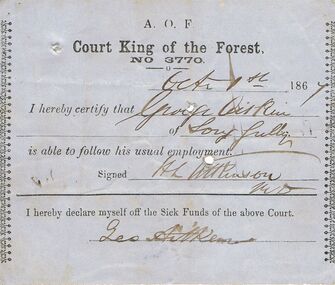 A. O. F
Court King of the Forest,
NO 3770.
Octr 1st 1867
I hereby certify that George Aitkin
of Long Gully
is able to follow his usual employment.
Signed H L Atkinson
I hereby declare myself off the Sick Funds of the above Court.
Geo Aitken